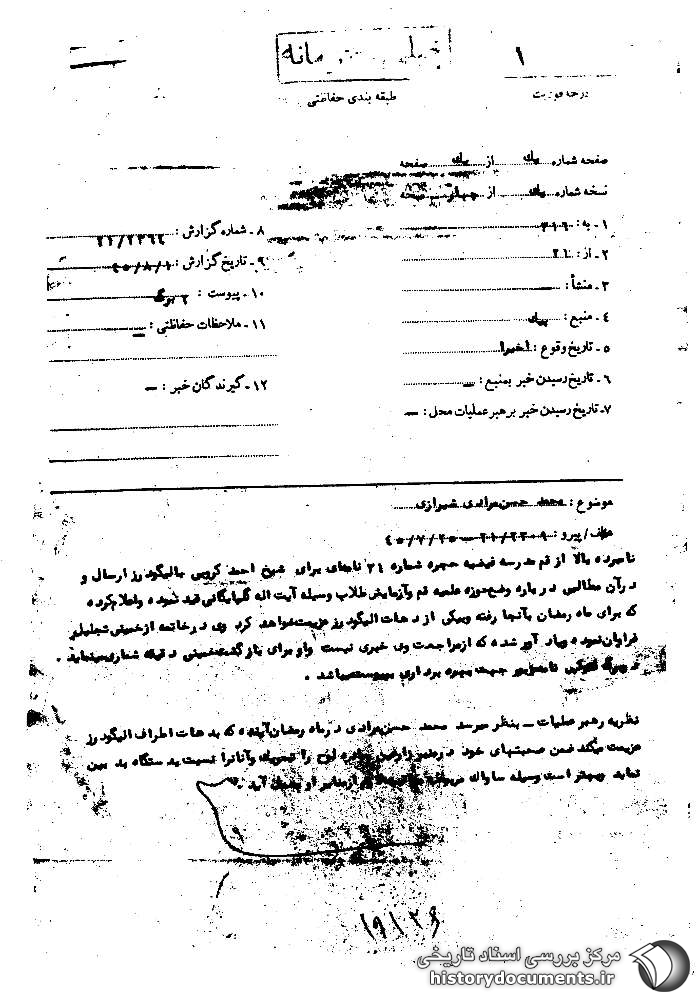 ۱
درجه فوریت
طبقه بندی حفاظتی
صفحه شماره یک از یک صفحه
نسخه شماره یک از چهار
۱ - به : ۳۱۶
۲ - از : ۲۱
۳ - منشأ : —
۴ - منبع :
۵ - تاریخ وقوع : اخیرا
۶ - تاریخ رسیدن خبر بمنبع : —
۷ - تاریخ رسیدن خبر برهبر عملیات محل : —
۸ - شماره گزارش : ۲۱/۲۳۶۴
۹ - تاریخ گزارش : ۴۵/۸/۱
۱۰ - پیوست : ۲ برگ
۱۱ - ملاحظات حفاظتی : —
۱۲ - گیرندگان خبر : —
موضوع : محمد حسن مرادی شیرازی
/ پیرو : ۲۱/۲۳۰۹ — ۴۵/۷/۲۵
نامبرده بالا از قم مدرسه فیضیه حجره شماره ۲۱ نامه‌ای برای شیخ احمد کروبی بالیگودرز ارسال و
در آن مطالبی در باره وضع حوزه علمیه قم و آزمایش طلاب وسیله آیت اله گلپایگانی قید نموده و اعلام کرده
که برای ماه رمضان بآنجا رفته و بیکی از دهات الیگودرز عزیمت خواهد کرد وی در خاتمه از خمینی تجلیل
فراوان نموده و یاد آور شده که از مراجعت وی خبری نیست و او برای بازگشت خمینی دقیقه شماری مینماید .
جهت بهره برداری بپیوست میباشد .
نظریه رهبر عملیات — بنظر میرسد محمد حسن مرادی در ماه رمضان آینده که به دهات اطراف الیگودرز
عزیمت میکند ضمن صحبتهای خود در منبر و آنانرا نسبت به دستگاه بد بین
نماید بهتر است وسیله ساواک از منبر او آید .
مرکز بررسی اسناد تاریخی
historydocuments.ir